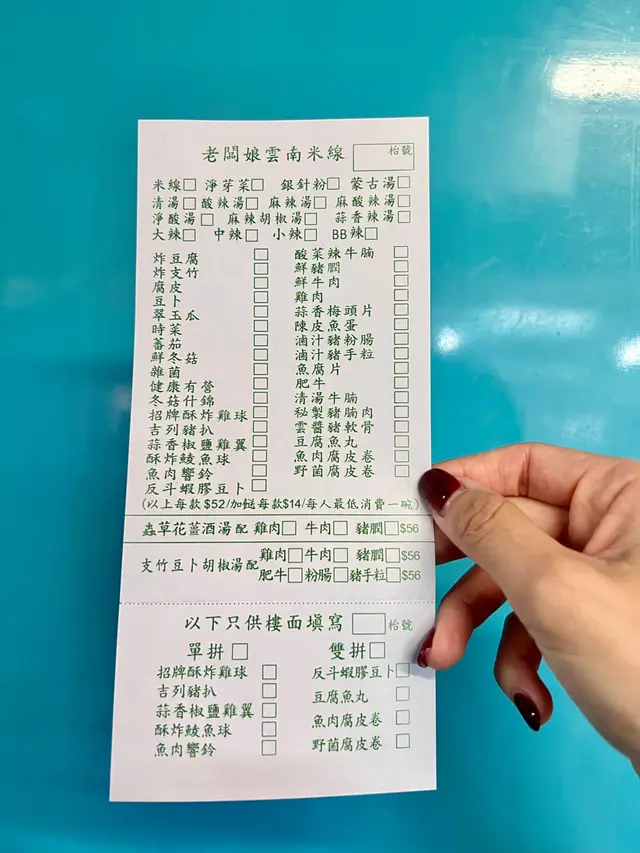 老闆娘雲南米線 枱號
米線□ 淨芽菜□ 銀針粉□ 蒙古湯□
清湯□ 酸辣湯□ 麻辣湯□ 麻酸辣湯□
淨酸湯□ 麻辣胡椒湯□ 蒜香辣湯□
大辣□ 中辣□ 小辣□ BB辣□
炸豆腐□
炸支竹□
腐皮□
豆卜□
翠玉瓜□
時菜□
蕃茄□
鮮冬菇□
雜菌□
健康有營□
冬菇什錦□
招牌酥炸雞球□
吉列豬扒□
蒜香椒鹽雞翼□
酥炸鯪魚球□
魚肉響鈴□
反斗蝦膠豆卜□
酸菜辣牛腩□
鮮豬膶□
鮮牛肉□
雞肉□
蒜香梅頭片□
陳皮魚蛋□
滷汁豬粉腸□
滷汁豬手粒□
魚腐片□
肥牛□
清湯牛腩□
秘製豬腩肉□
雲醬豬軟骨□
豆腐魚丸□
魚肉腐皮卷□
野菌腐皮卷□
(以上每款$52/加餸每款$14/每人最低消費一碗)
蟲草花薑酒湯配 雞肉□ 牛肉□ 豬膶□$56
支竹豆卜胡椒湯配 雞肉□牛肉□ 豬膶□$56
肥牛□粉腸□豬手粒□$56
以下只供樓面填寫 □枱號
單拼□
招牌酥炸雞球□
吉列豬扒□
蒜香椒鹽雞翼□
酥炸鯪魚球□
魚肉響鈴□
雙拼□
反斗蝦膠豆卜□
豆腐魚丸□
魚肉腐皮卷□
野菌腐皮卷□